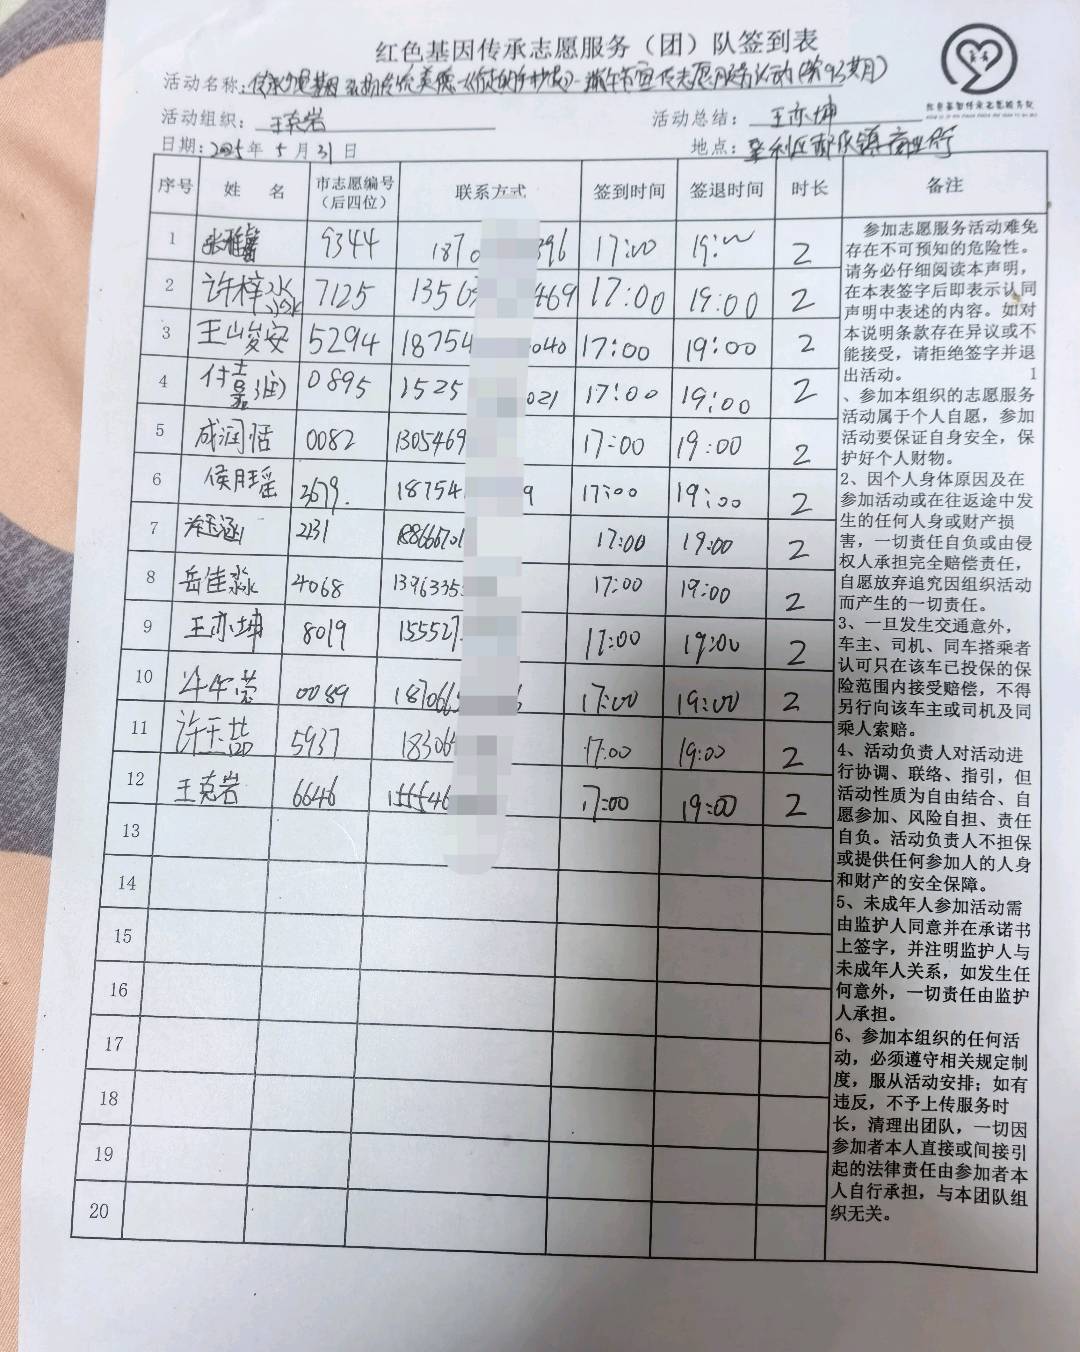 红色基因传承志愿服务（团）队签到表
活动名称：传承 美德 端午节宣传志愿服务活动（第93期）
活动组织：王克岩
活动总结：王亦坤
日期：2025年5月31日
地点：垦利区郝家镇商业街
序号 姓 名 市志愿编号（后四位） 联系方式 签到时间 签退时间 时长 备注
1 张雅馨 9344 1870 396 17:00 19:00 2
2 许梓 7125 1356 469 17:00 19:00 2
3 王山岁安 5294 18754 040 17:00 19:00 2
4 付嘉润 0895 1525 021 17:00 19:00 2
5 成润恬 0082 1305469 17:00 19:00 2
6 侯月瑶 3679. 18754 9 17:00 19:00 2
7 涵 2131 188666701 17:00 19:00 2
8 岳佳淼 4068 1396335 17:00 19:00 2
9 王亦坤 8019 155527 17:00 19:00 2
10 0089 1870665 6 17:00 19:00 2
11 许玉芷 5937 18306 17:00 19:00 2
12 王克岩 6646 155546 17:00 19:00 2
13
14
15
16
17
18
19
20
参加志愿服务活动难免
存在不可预知的危险性。
请务必仔细阅读本声明，
在本表签字后即表示认同
声明中表述的内容。如对
本说明条款存在异议或不
能接受，请拒绝签字并退
出活动。 1
、参加本组织的志愿服务
活动属于个人自愿，参加
活动要保证自身安全，保
护好个人财物。
2、因个人身体原因及在
参加活动或在往返途中发
生的任何人身或财产损
害，一切责任自负或由侵
权人承担完全赔偿责任，
自愿放弃追究因组织活动
而产生的一切责任。
3、一旦发生交通意外，
车主、司机、同车搭乘者
认可只在该车已投保的保
险范围内接受赔偿，不得
另行向该车主或司机及同
乘人索赔。
4、活动负责人对活动进
行协调、联络、指引，但
活动性质为自由结合、自
愿参加、风险自担、责任
自负。活动负责人不担保
或提供任何参加人的人身
和财产的安全保障。
5、未成年人参加活动需
由监护人同意并在承诺书
上签字，并注明监护人与
未成年人关系，如发生任
何意外，一切责任由监护
人承担。
6、参加本组织的任何活
动，必须遵守相关规定制
度，服从活动安排；如有
违反，不予上传服务时
长，清理出团队，一切因
参加者本人直接或间接引
起的法律责任由参加者本
人自行承担，与本团队组
织无关。